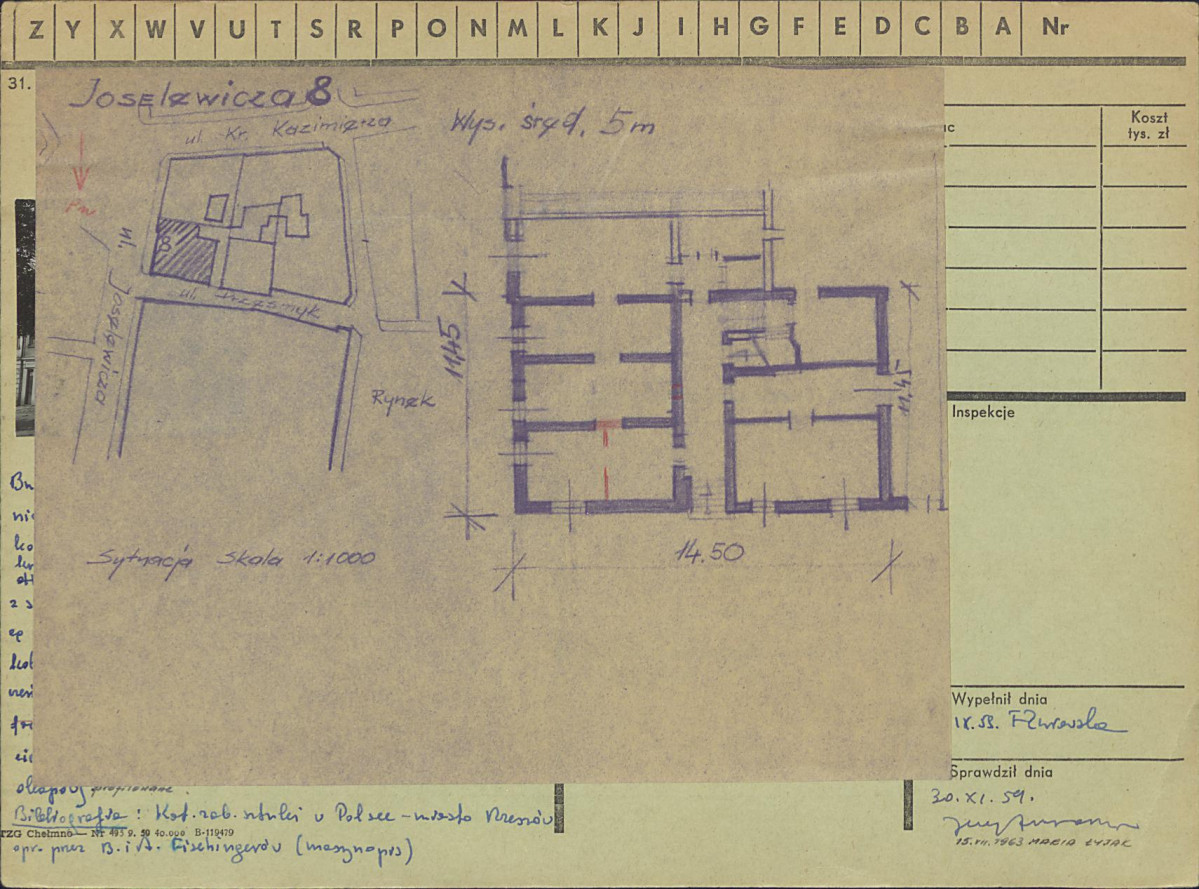 Z Y X W V U T S R P O N M L K J I H G F E D C B A Nr
31.
Joselewicza 8
ul. Kr. Kazimierza
Wys. śred. 5m
Koszt
tys. zł
ac
Pn
8
ul. Joselewicza
ul. Przesmyk
Rynek
11,45
11.45
14.50
Sytuacja Skala 1:1000
Inspekcje
Wypełnił dnia
IX.59.
Sprawdził dnia
30.XI.59.
15.VII.1963 MARIA ŁYJAK
okapowy profilowane.
Bibliografia: Kat. zab. sztuki w Polsce – miasto Rzeszów
TZG Chełmno — Nr 495 9. 59 40.000 B-119479
opr. przez B. i A. Fischingerów (maszynopis)